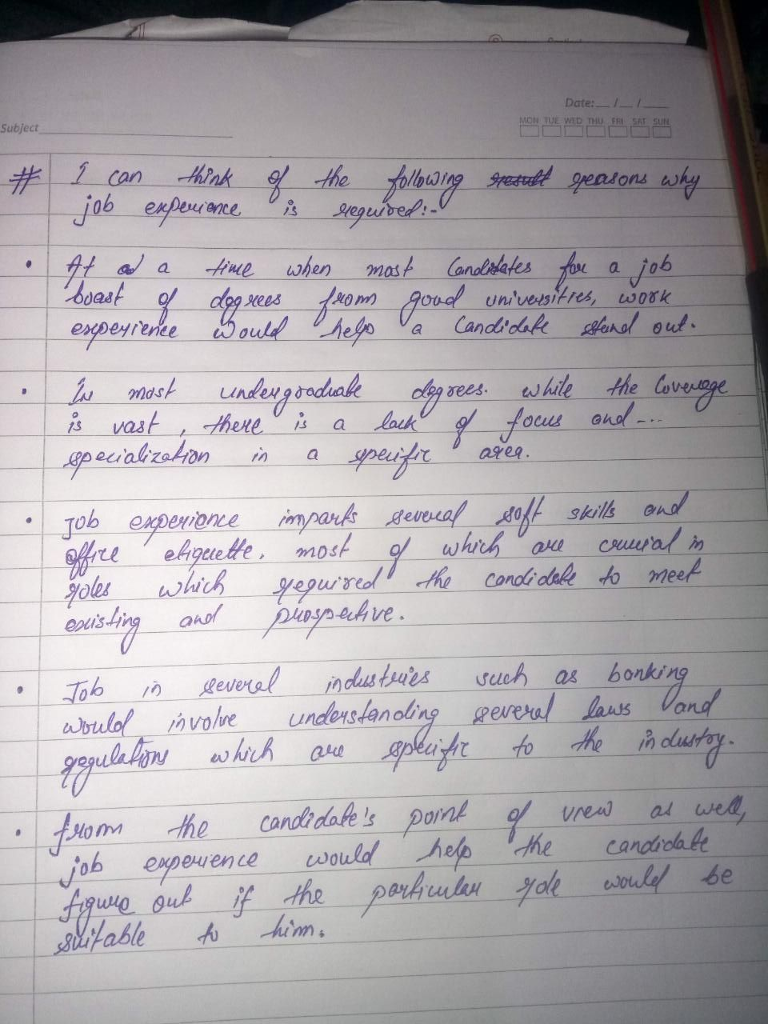 Date: __/__/___
Subject
MON TUE WED THU FRI SAT SUN
# I can think of the following result reasons why
job experience is required:-
• At a a time when most Candidates for a job
boast of degrees from good universities, work
experience would help a Candidate stand out.
• In most undergraduate degrees. while the Coverage
is vast, there is a lack of focus and -...
specialization in a specific area.
• Job experience imparts several soft skills and
office etiquette. most of which are crucial in
roles which required the candidate to meet
existing and prospective.
• Job in several industries such as banking
would involve understanding several laws and
regulations which are specific to the industry.
• from the candidate's point of view as well,
job experience would help the candidate
figure out if the particular role would be
suitable to him.